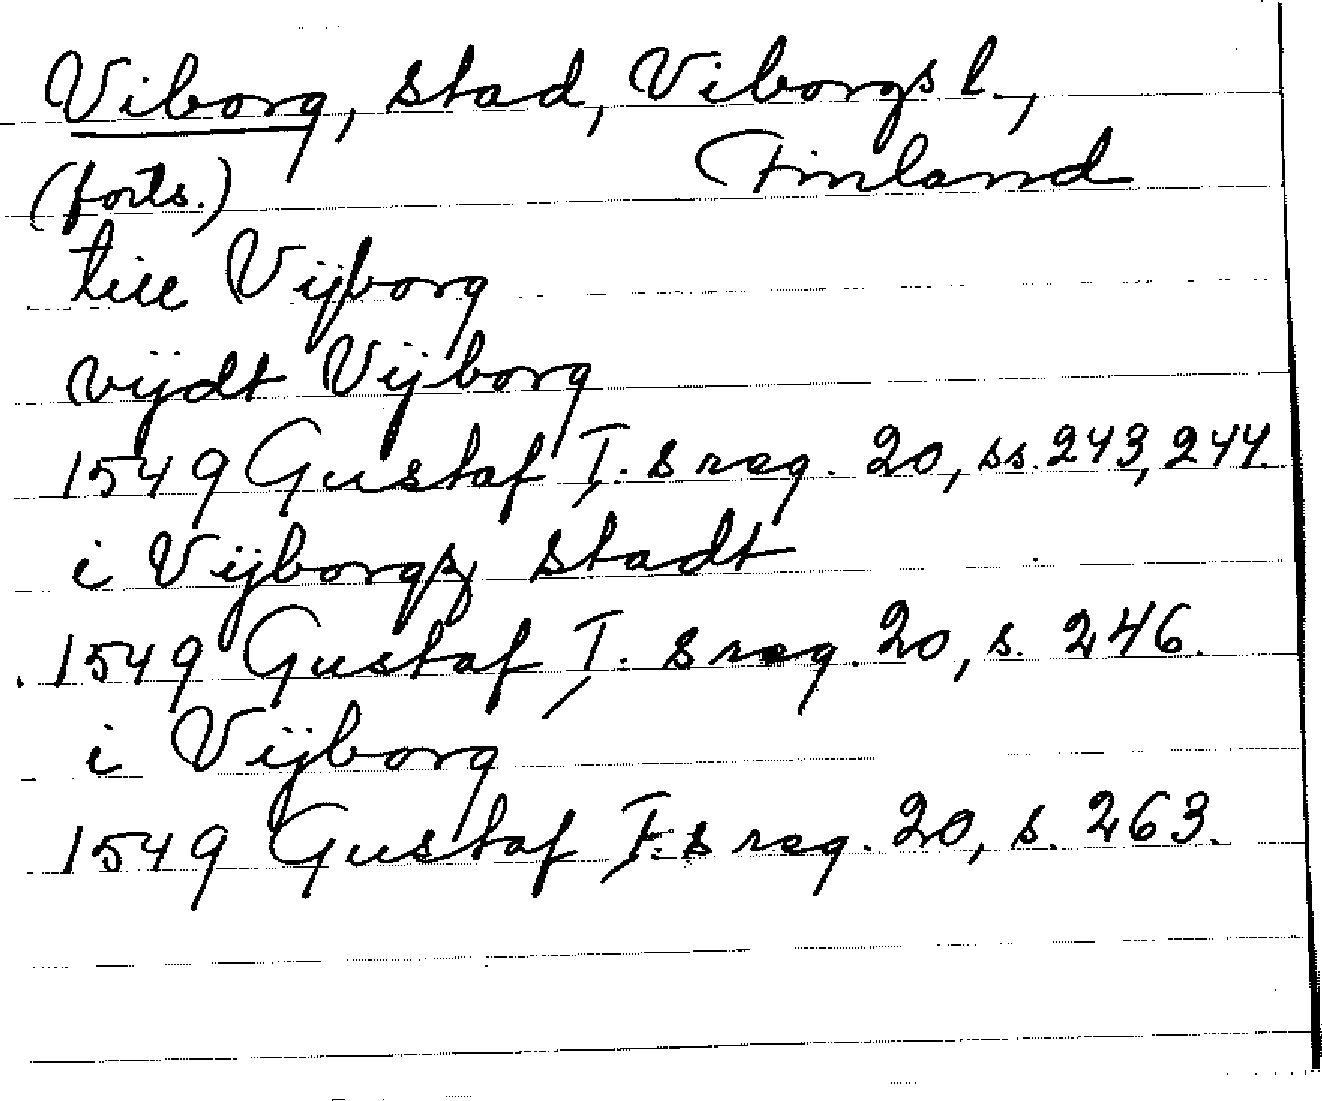 Viborg, stad, Viborgs l.,
(forts.) Finland
till Vijborg
vijdt Vijborg
1549 Gustaf I. s reg. 20, ss. 243, 244.
i Vijborgs stadt
1549 Gustaf I. s reg. 20, s. 246.
i Vijborg
1549 Gustaf I. s reg. 20, s. 263.